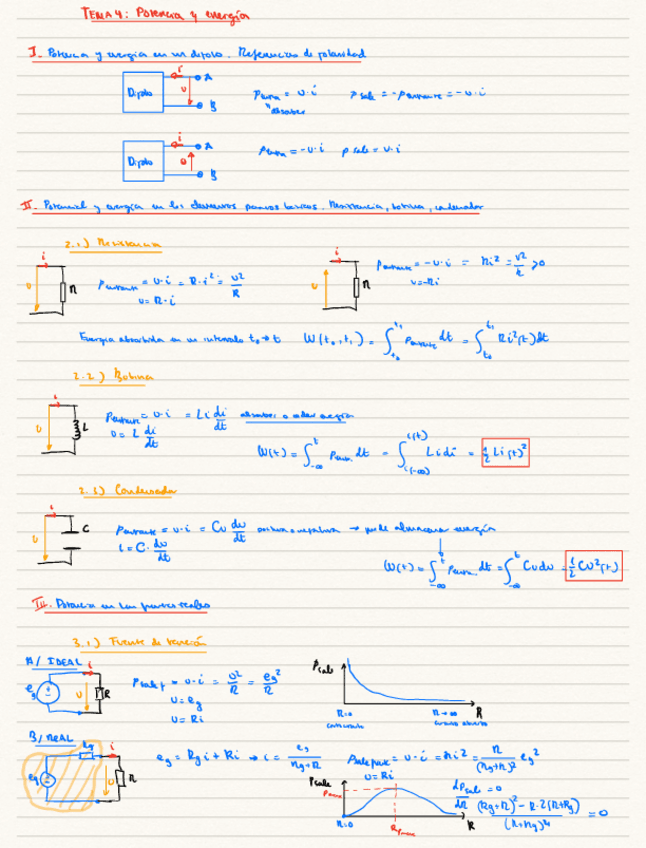 TEMA 4: Potencia y energía
I. Potencia y energía en un dipolo. Referencias de polaridad
Dipolo i A u B
p entra = u·i p sale = -p entrante = -u·i
absorber
Dipolo i A u B
p entra = -u·i p sale = u·i
II. Potencial y energía en los elementos pasivos básicos. Resistencia, bobina, condensador
2.1) Resistencia
i u R
P entrante = u·i = R·i² = u²/R
u = R·i
i u R
P entrante = -u·i = Ri² = u²/R >0
u = -Ri
Energía absorbida en un intervalo t₀ → t W(t₀,t₁) = ∫t₀^t₁ P entrante dt = ∫t₀^t₁ Ri²(t)dt
2.2) Bobina
i u L
P entrante = u·i = Li di/dt absorber o ceder energía
u = L di/dt
W(t) = ∫-∞^t P entra dt = ∫i(-∞)^i(t) Li di = ½ Li(t)²
2.3) Condensador
i u C
P entrante = u·i = Cu du/dt positiva o negativa → puede almacenar energía
i = C· du/dt
W(t) = ∫-∞^t P entra dt = ∫-∞^t Cu du = ½ Cu²(t)
III. Potencia en las fuentes reales
3.1) Fuente de tensión
A/ IDEAL
eg i u R
P sale f = u·i = u²/R = eg²/R
u = eg
u = Ri
P sale
R=0 R→∞ R
cortocircuito circuito abierto
B/ REAL
eg Rg i u R
eg = Rg i + Ri → i = eg/(Rg+R) P sale fuente = u·i = Ri² = R/(Rg+R)² eg²
u = Ri
P sale
P max
R=0 R pmax R
dP sale/dR = 0
((Rg+R)² - R·2(R+Rg))/(R+Rg)⁴ = 0